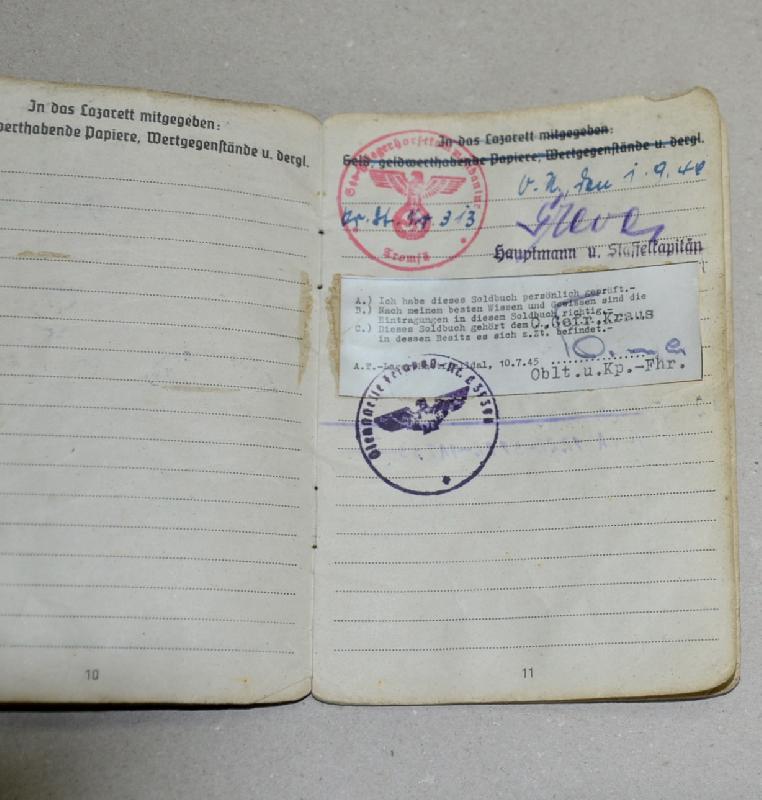 In das Lazarett mitgegeben:
werthabende Papiere, Wertgegenstände u. dergl.
10
In das Lazarett mitgegeben:
Geld, geldwerthabende Papiere, Wertgegenstände u. dergl.
O.U., den 1.9.44
313
Hauptmann u. Staffelkapitän
Tromsö
A.) Ich habe dieses Soldbuch persönlich geprüft.-
B.) Nach meinem besten Wissen und Gewissen sind die
Eintragungen in diesem Soldbuch richtig.-
C.) Dieses Soldbuch gehört dem O.Gefr.Kraus
in dessen Besitz es sich z.Zt. befindet.-
10.7.45
Oblt.u.Kp.-Fhr.
Dienststelle Feldpost-Nr.
11